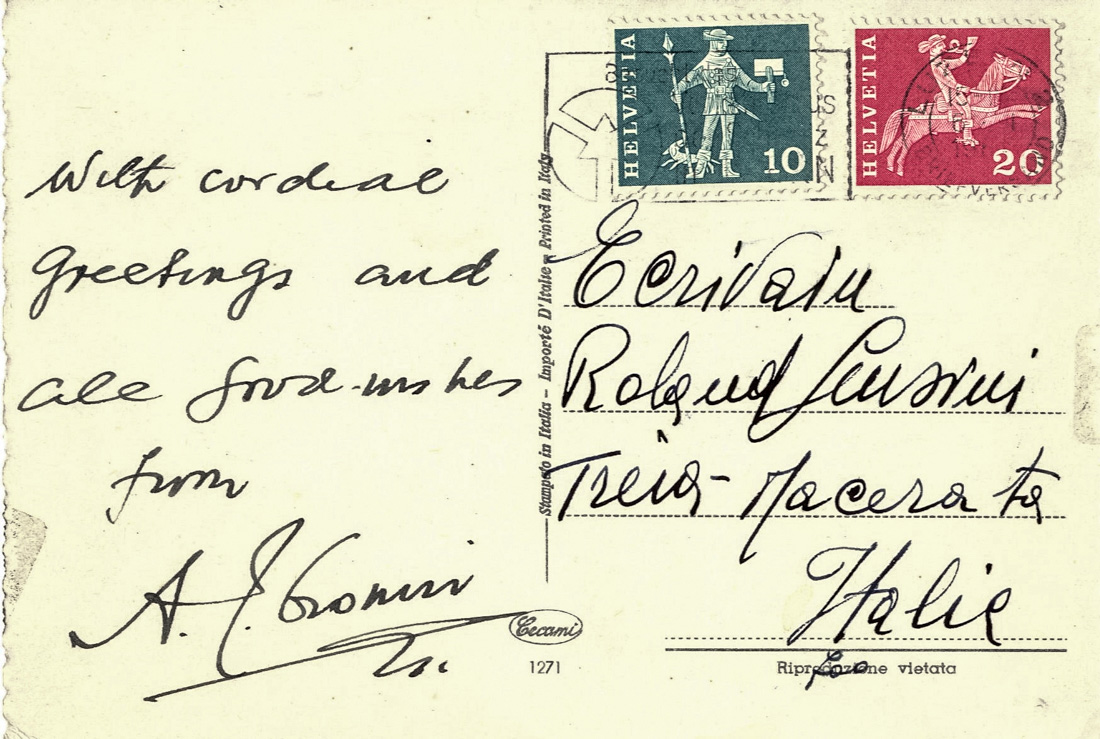 With cordial
Greetings and
all good-wishes
from
A. J. Cronin
HELVETIA
10
HELVETIA
20
Ecrivain
Roland
Treia - Macerata
Italie
Stampato in Italia - Importé D'Italie - Printed in Italy
Cecami
1271
Riproduzione vietata